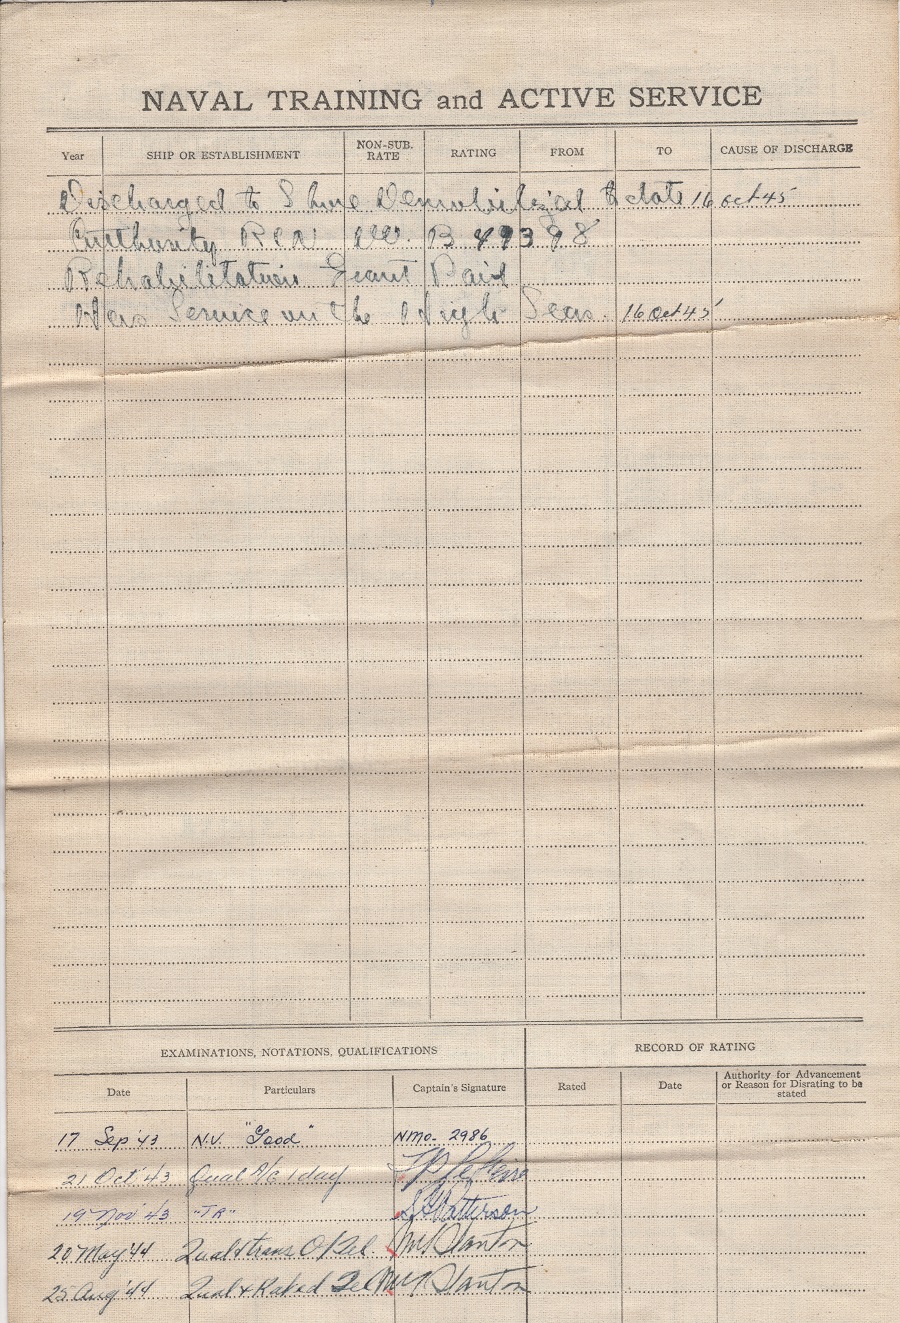 NAVAL TRAINING and ACTIVE SERVICE
Year SHIP OR ESTABLISHMENT NON-SUB. RATE RATING FROM TO CAUSE OF DISCHARGE
Discharged to Shore Demobilized to date 16 Oct 45
Authority RCN B 49398
Rehabilitation Grant Paid
Has Service on the High Seas. 16 Oct 45
EXAMINATIONS, NOTATIONS, QUALIFICATIONS RECORD OF RATING
Date Particulars Captain's Signature Rated Date Authority for Advancement or Reason for Disrating to be stated
17 Sep '43 N.V. "Good" NMO- 2986
21 Oct '43 Qual A/G 1 day
19 Nov '43 "TR" Patterson
20 May '44 Qual & trans O/Tel. Stanton
25 Aug '44 Qual & Rated Tel Stanton